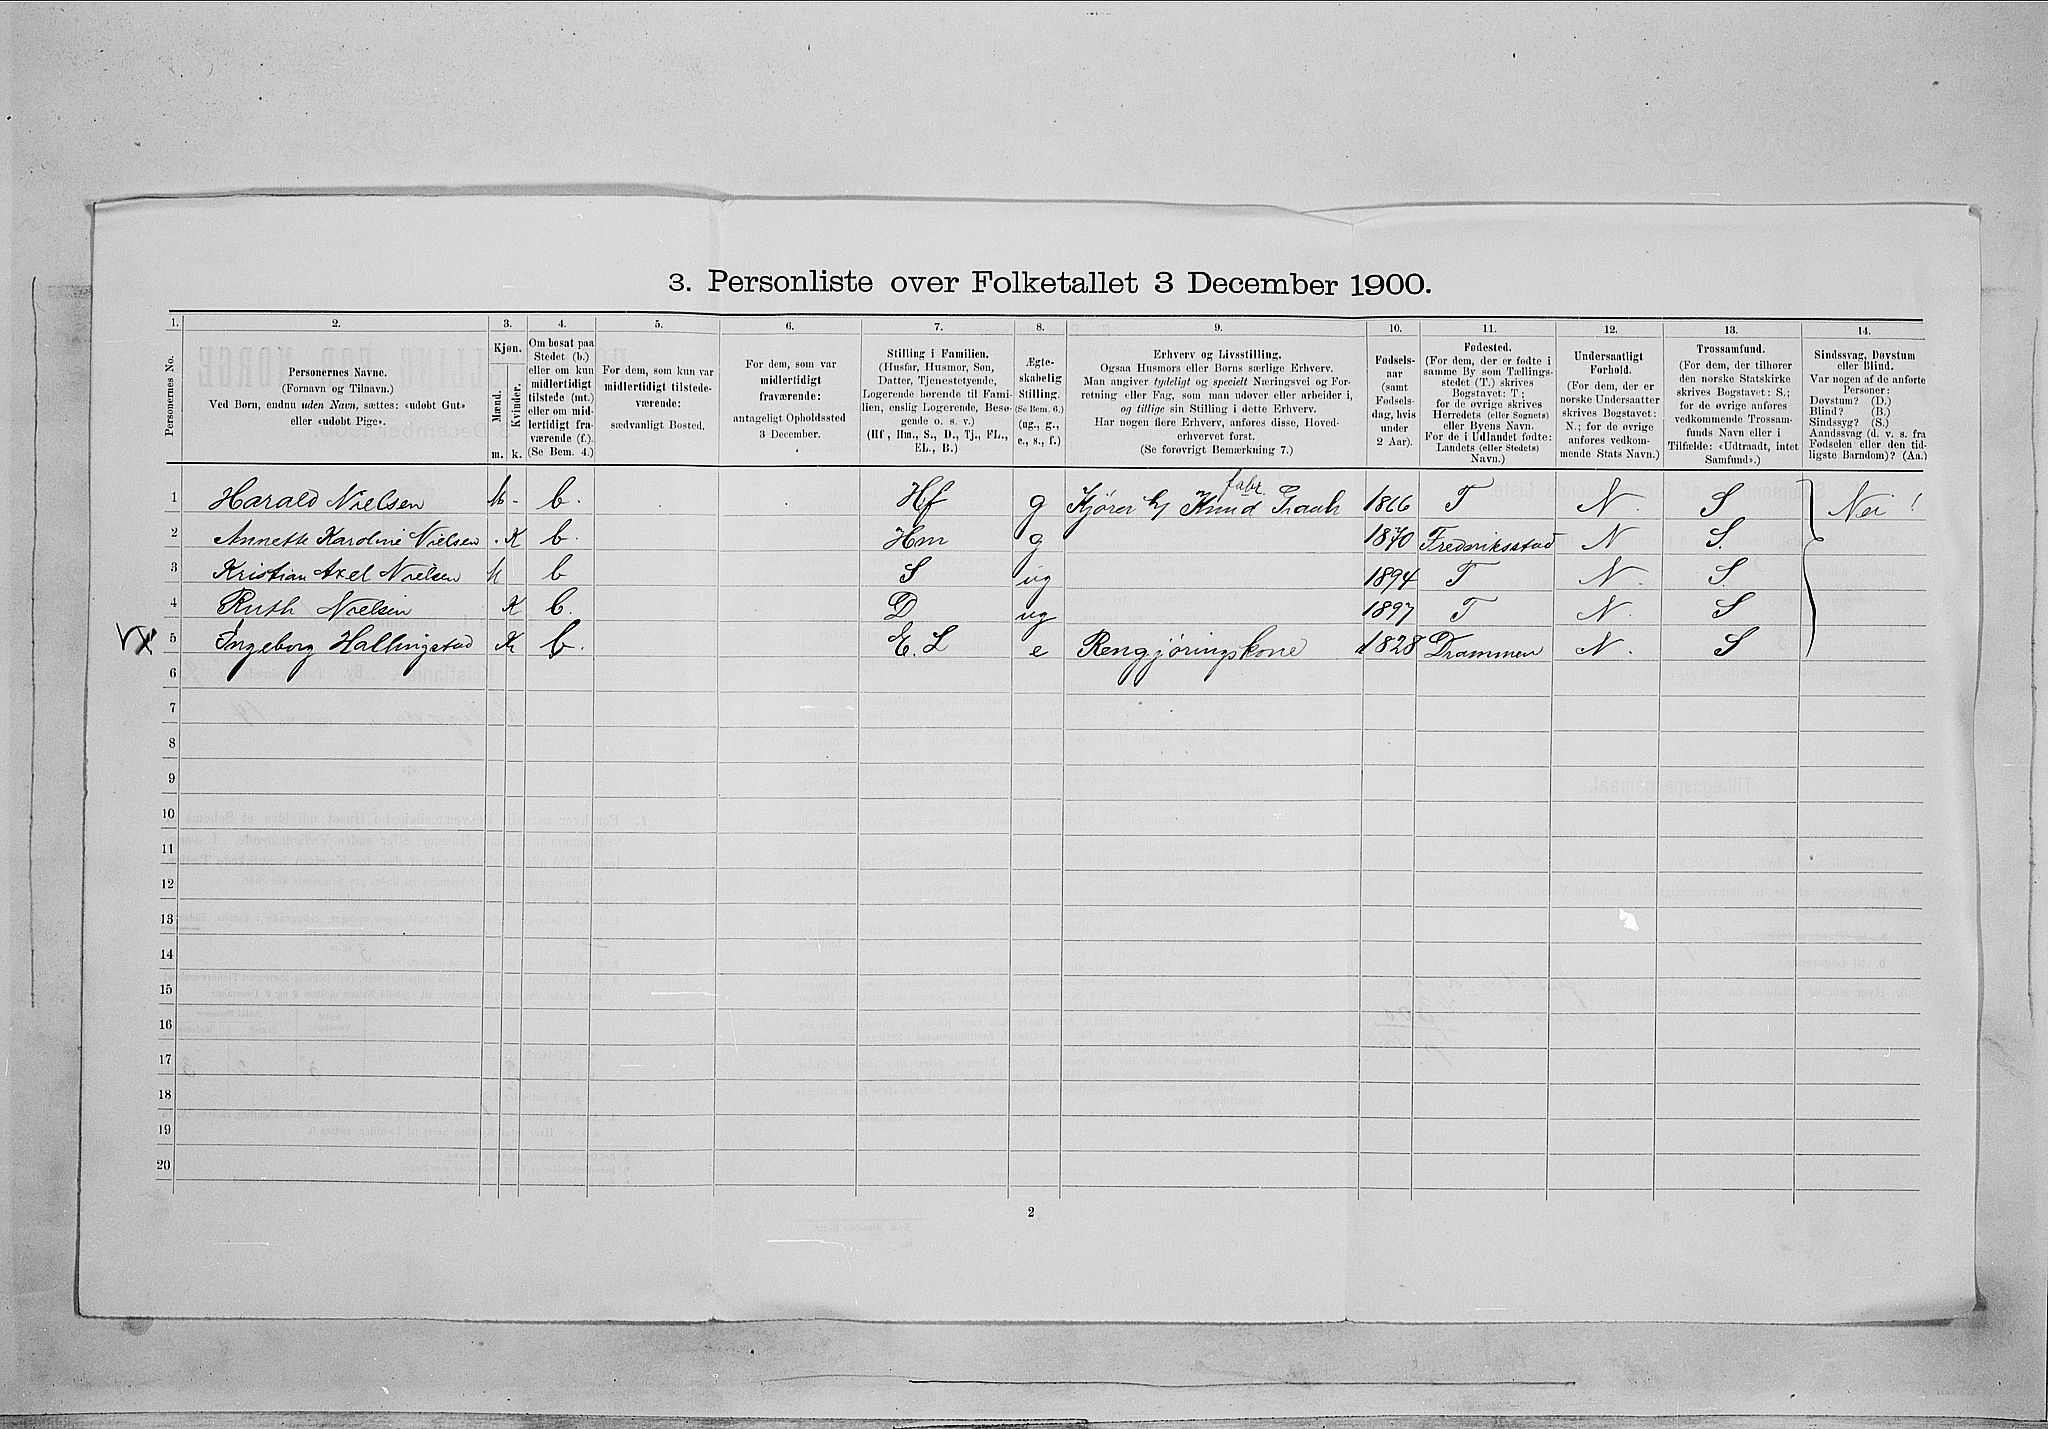 3. Personliste over Folketallet 3 December 1900.
1. 2. 3. 4. 5. 6. 7. 8. 9. 10. 11. 12. 13. 14.
Personernes No.
Personernes Navne.
(Fornavn og Tilnavn.)
Ved Børn, endnu uden Navn, sættes: «udøbt Gut»
eller «udøbt Pige».
Kjøn.
Mænd.
Kvinder.
m. k.
Om bosat paa
Stedet (b.)
eller om kun
midlertidigt
tilstede (mt.)
eller om mid-
lertidigt fra-
værende (f.).
(Se Bem. 4.)
For dem, som kun var
midlertidigt tilstede-
værende:
sædvanligt Bosted.
For dem, som var
midlertidigt
fraværende:
antageligt Opholdssted
3 December.
Stilling i Familien.
(Husfar, Husmor, Søn,
Datter, Tjenestetyende,
Logerende hørende til Fami-
lien, enslig Logerende, Besø-
gende o. s. v.)
(Hf., Hm., S., D., Tj., FL.,
EL., B.)
Ægte-
skabelig
Stilling.
(Se Bem. 6.)
(ug., g.,
e., s., f.)
Erhverv og Livsstilling.
Ogsaa Husmors eller Børns særlige Erhverv.
Man angiver tydeligt og specielt Næringsvei og For-
retning eller Fag, som man udøver eller arbeider i,
og tillige sin Stilling i dette Erhverv.
Har nogen flere Erhverv, anføres disse, Hoved-
erhvervet først.
(Se forøvrigt Bemærkning 7.)
Fødsels-
aar
(samt
Fødsels-
dag, hvis
under
2 Aar).
Fødested.
(For dem, der er fødte i
samme By som Tællings-
stedet (T.) skrives
Bogstavet: T;
for de øvrige skrives
Herredets (eller Sognets)
eller Byens Navn.
For de i Udlandet fødte:
Landets (eller Stedets)
Navn.)
Undersaatligt
Forhold.
(For dem, der er
norske Undersaatter
skrives Bogstavet:
N.; for de øvrige
anføres vedkom-
mende Stats Navn.)
Trossamfund.
(For dem, der tilhører
den norske Statskirke
skrives Bogstavet: S.;
for de øvrige anføres
vedkommende Trossam-
funds Navn eller i
Tilfælde: «Udtraadt, intet
Samfund».)
Sindssvag, Døvstum
eller Blind.
Var nogen af de anførte
Personer:
Døvstum? (D.)
Blind? (B.)
Sindssyg? (S.)
Aandssvag (d. v. s. fra
Fødselen eller den tid-
ligste Barndom)? (Aa.)
1 Harald Nielsen M. b. Hf g Kjører h/ Knud Graah fabr. 1866 T N. S Nei!
2 Annette Karoline Nielsen K b. Hm g 1870 Frederiksstad N S.
3 Kristian Axel Nielsen M b S ug 1894 T N. S.
4 Ruth Nielsen K b. D ug 1897 T N. S
5 Ingeborg Hallingstad K b. E. L e Rengjøringskone 1828 Drammen N. S
6
7
8
9
10
11
12
13
14
15
16
17
18
19
20
2